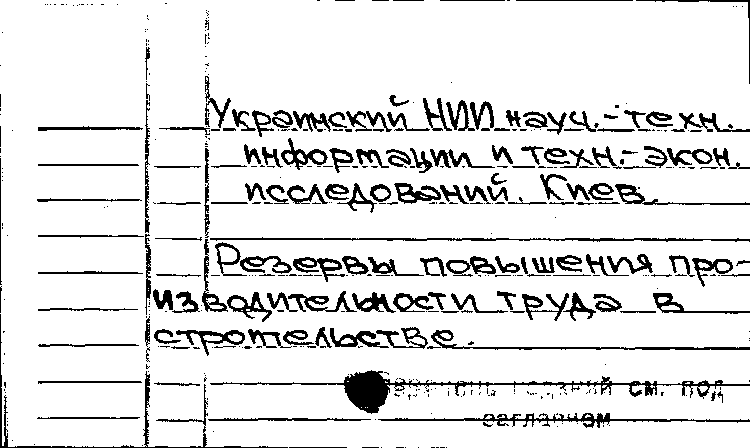 Украинский НИИ науч.-техн.
информации и техн.-экон.
исследований. Киев.
Резервы повышения про-
изводительности труда в
строительстве.
см. под
заглавием